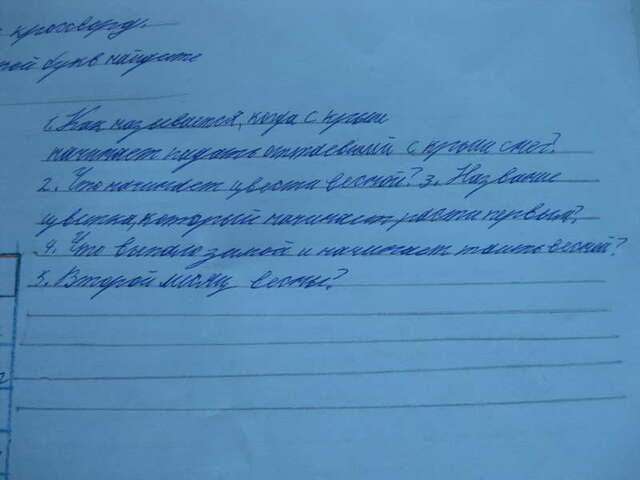 кроссворду.
букв найдите
1. Как называется, когда с крыши
начинает падать оттаевший с крыши снег?
2. Что начинает цвести весной? 3. Название
цветка, который начинает расти первым?
4. Что выпало зимой и начинает таить весной?
5. Второй месяц весны?